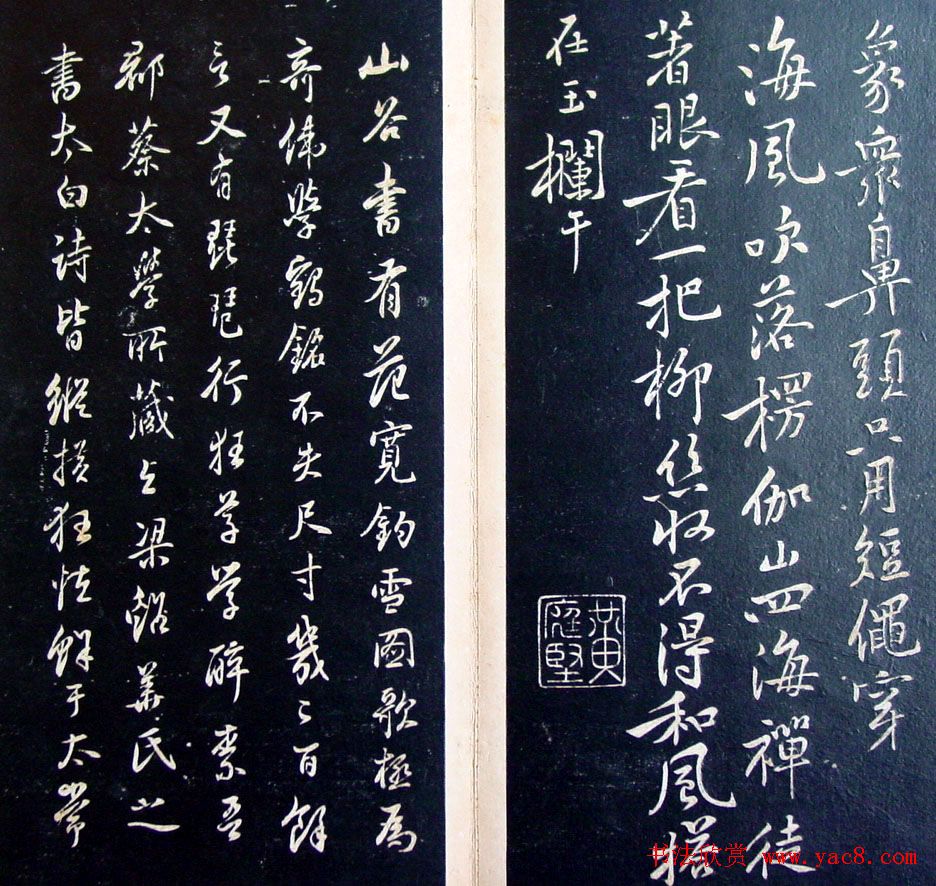 象眾鼻頭只用短繩穿
海風吹落楞伽山四海禪徒
著眼看一把柳絲收不得和風搭
在玉欄干
黃庭堅
山谷書有范寬釣雪圖歌極為
奇偉學鶴銘不失尺寸幾〻百餘
言又有琵琶行狂草學醉素吾
郡蔡太學所藏与梁谿華氏之
書太白詩皆縱橫狂怪鮮于太常
书法欣赏 www.yac8.com